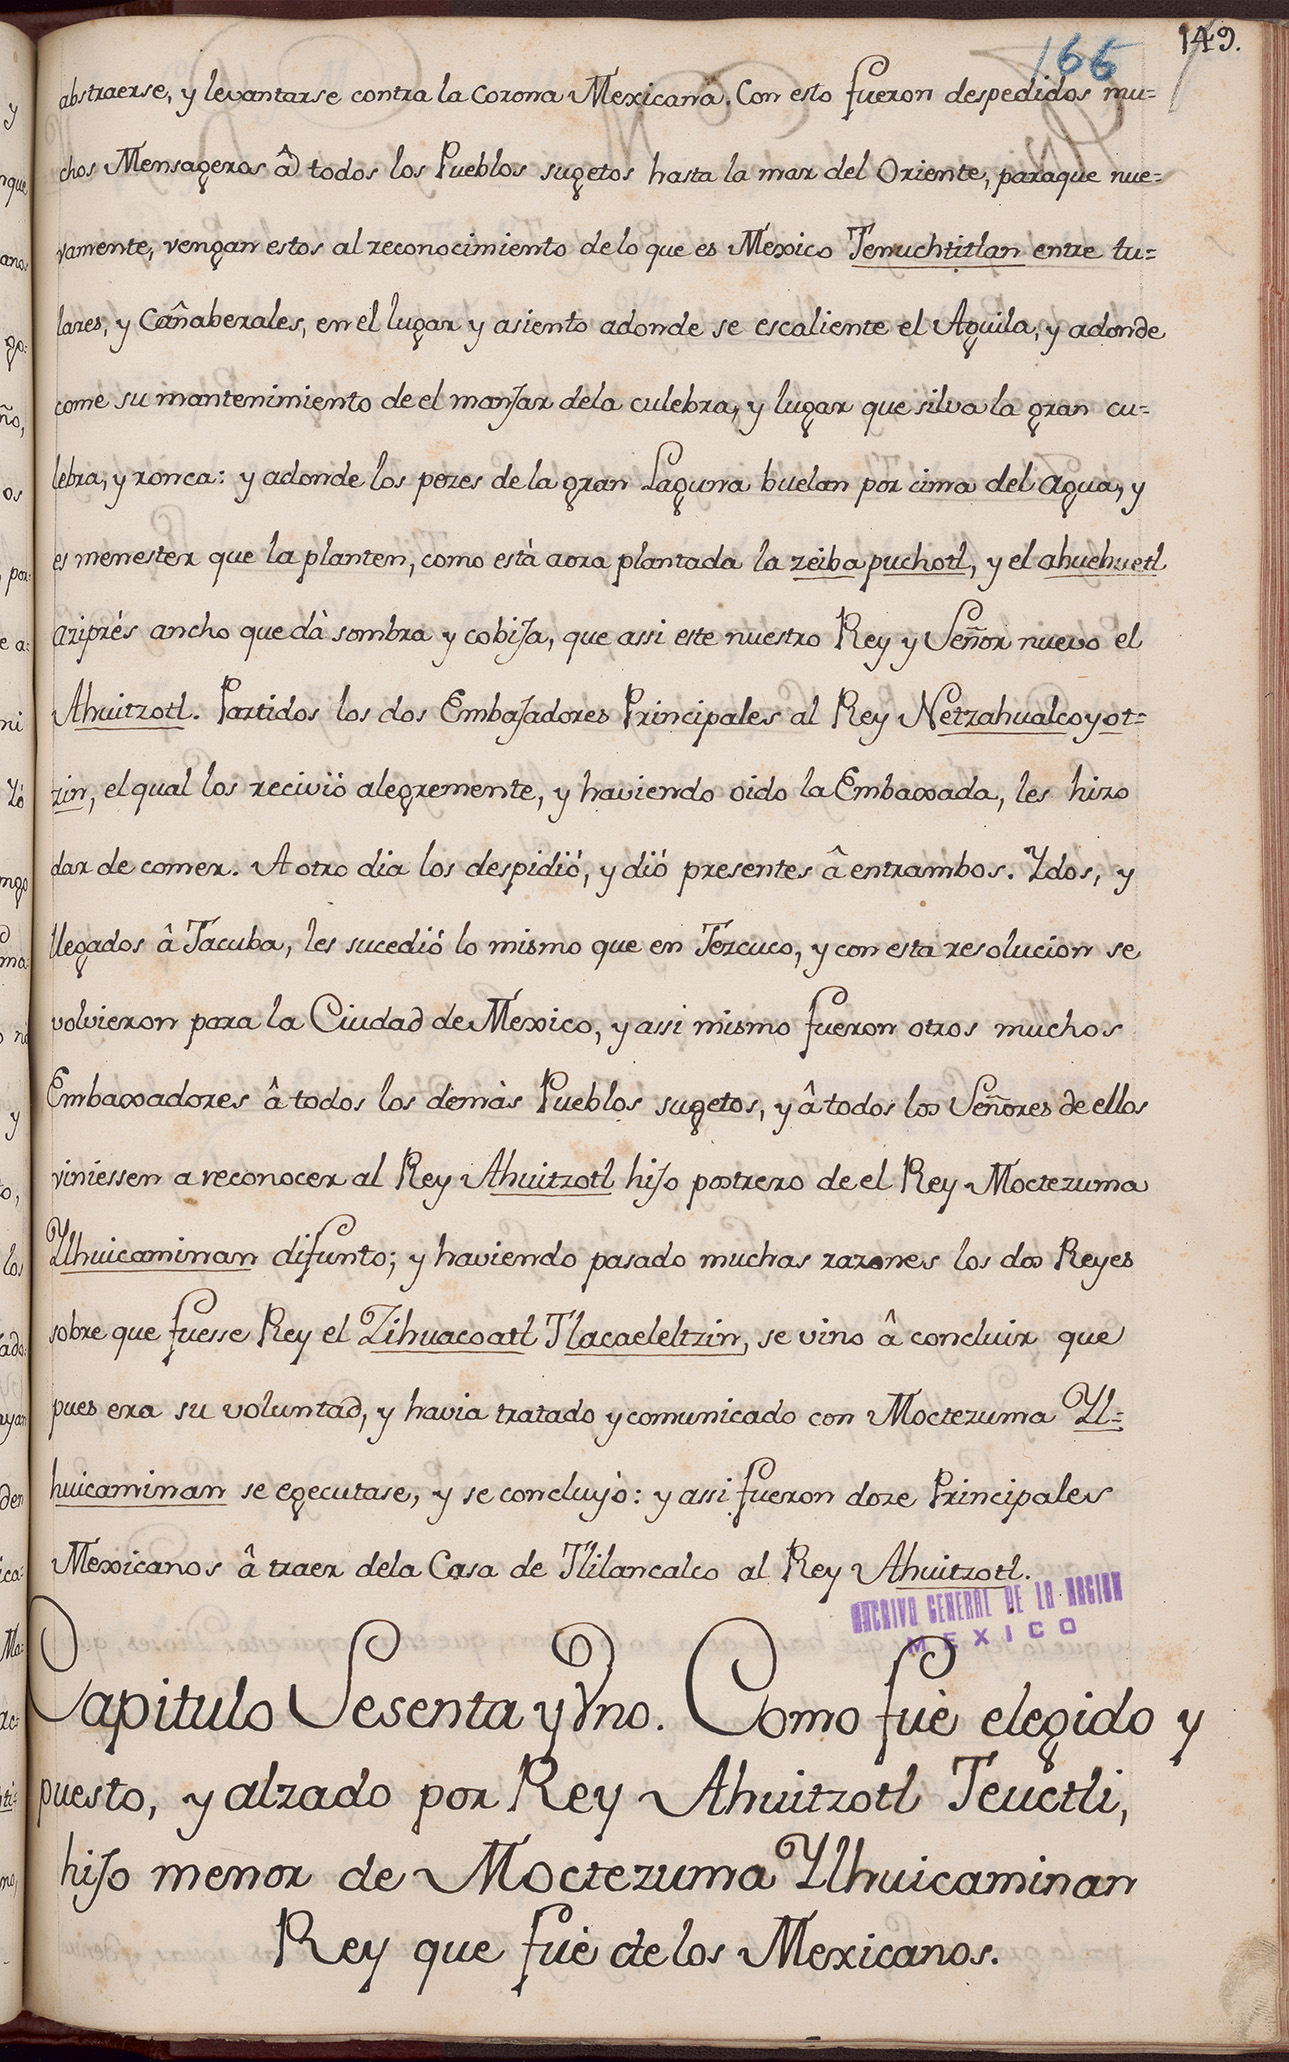 166 149.
abstraerse, y levantarse contra la corona Mexicana. Con esto fueron despedidos mu=
chos Mensageros â todos los Pueblos sugetos hasta la mar del Oriente, paraque nue=
vamente, vengan estos al reconocimiento de lo que es Mexico Temuchtitlan entre tu=
lares, y Cañaberales, en el lugar y asiento adonde se escaliente el Aguila, y adonde
come su mantenimiento de el manjar dela culebra, y lugar que silva la gran cu=
lebra, y ronca: y adonde los pezes de la gran Laguna buelan por cima del agua, y
es menester que la planten, como està aora plantada la zeiba puchotl, y el ahuehuetl
aziprés ancho que dà sombra y cobija, que assi este nuestro Rey y Señor nuevo el
Ahuitzotl. Partidos los dos Embajadores Principales al Rey Netzahualcoyot=
zin, el qual los recivió alegremente, y haviendo oido la Embaxada, les hizo
dar de comer. A otro dia los despidió, y dió presentes â entrambos. Ydos, y
llegados â Tacuba, les sucedió lo mismo que en Tezcuco, y con esta resolucion se
volvieron para la Ciudad de Mexico, y assi mismo fueron otros muchos
Embaxadores â todos los demàs Pueblos sugetos, y â todos los Señores de ellos
viniessen a reconocer al Rey Ahuitzotl hijo postrero de el Rey Moctezuma
Ylhuicaminan difunto; y haviendo pasado muchas razones los dos Reyes
sobre que fuesse Rey el Zihuacoatl Tlacaeleltzin, se vino â concluir que
pues era su voluntad, y havia tratado y comunicado con Moctezuma Yl=
huicaminan se egecutase, y se concluyò: y assi fueron doze Principales
Mexicanos â traer dela Casa de Tlilancalco al Rey Ahuitzotl.
ARCHIVO GENERAL DE LA NACION
MEXICO
Capitulo Sesenta y Vno. Como fuè elegido y
puesto, y alzado por Rey Ahuitzotl Teuctli,
hijo menor de Moctezuma Ylhuicaminan
Rey que fuè de los Mexicanos.